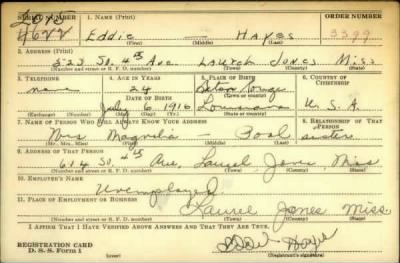 SERIAL NUMBER 1. NAME (Print) ORDER NUMBER
Eddie — Hayes 3399
(First) (Middle) (Last)
2. ADDRESS (Print)
523 So. 4th Ave Laurel Jones Miss
(Number and street or R. F. D. number) (Town) (County) (State)
3. TELEPHONE 4. AGE IN YEARS 5. PLACE OF BIRTH 6. COUNTRY OF CITIZENSHIP
none 24 Baton Rouge
DATE OF BIRTH (Town or county)
July 6 1916 Louisiana U.S.A.
(Exchange) (Number) (Mo.) (Day) (Yr.) (State or country)
7. NAME OF PERSON WHO WILL ALWAYS KNOW YOUR ADDRESS 8. RELATIONSHIP OF THAT PERSON
Mrs Magnolia — Pool sister
(Mr., Mrs., Miss) (First) (Middle) (Last)
9. ADDRESS OF THAT PERSON
614 So. 4th Ave, Laurel Jones Miss
(Number and street or R. F. D. number) (Town) (County) (State)
10. EMPLOYER'S NAME
Unemployed
11. PLACE OF EMPLOYMENT OR BUSINESS
Laurel Jones Miss
(Number and street or R. F. D. number) (Town) (County) (State)
I AFFIRM THAT I HAVE VERIFIED ABOVE ANSWERS AND THAT THEY ARE TRUE.
REGISTRATION CARD
D. S. S. Form 1